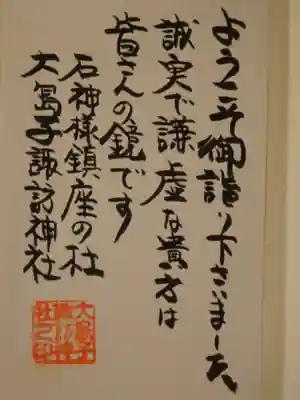 ようこそ御詣り下さいました、
誠実で謙虚な貴方は
皆さんの鏡です
石神様鎮座の杜
大島子諏訪神社